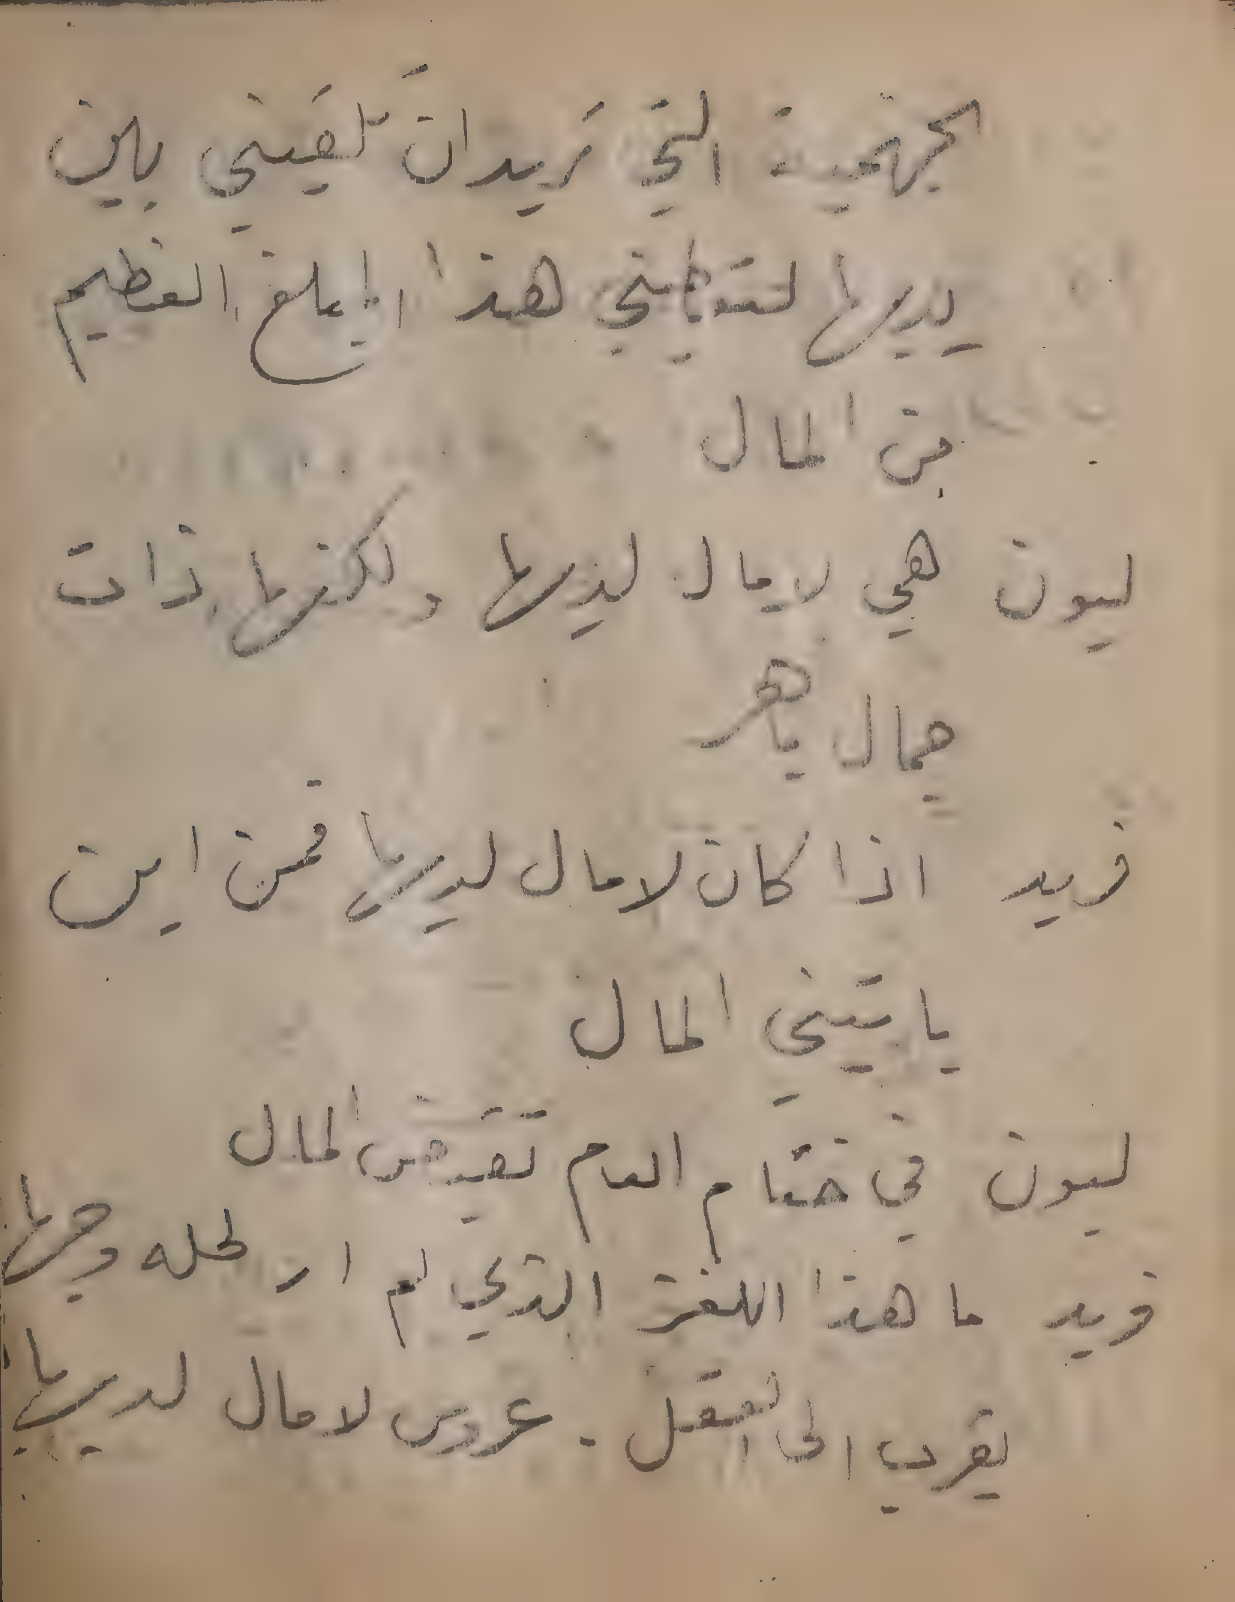 الجهنمية التي تريد ان تلقيني بين
يديها لتعطيني هذا المبلغ العظيم
من المال
ليون هي لا مال لديها ولكنها ذات
جمال باهر
فريد اذا كان لا مال لديها فمن اين
ياتيني المال
ليون في ختام العام تقبض المال
فريد ما هذا اللغز الذي لم ار لحله وجها
يقرب الى العقل . عروس لا مال لديها